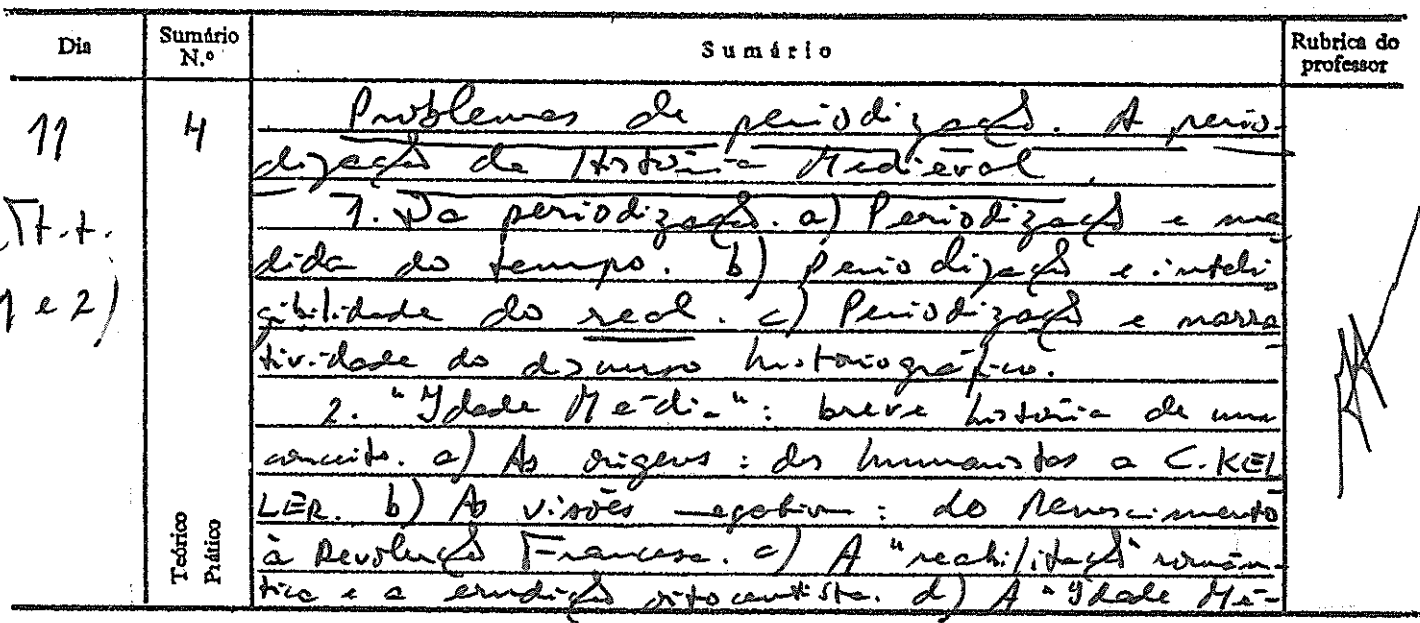 Dia
Sumário N.º
Sumário
Rubrica do professor
11
4
Problemas de periodização. A perio-
dização da História Medieval.
1. Da periodização. a) Periodização e me
dida do tempo. b) Periodização e inteli
gibilidade do real. c) Periodização e narra
tividade do discurso historiográfico.
2. "Idade Média": breve história de um
conceito. a) As origens: dos humanistas a C. KEL
LER. b) As visões negativas: do Renascimento
à Revolução Francesa. c) A "reabilitação" român-
tica e a erudição oitocentista. d) A "Idade Mé-
t.t.
1 e 2)
Teórico
Prático